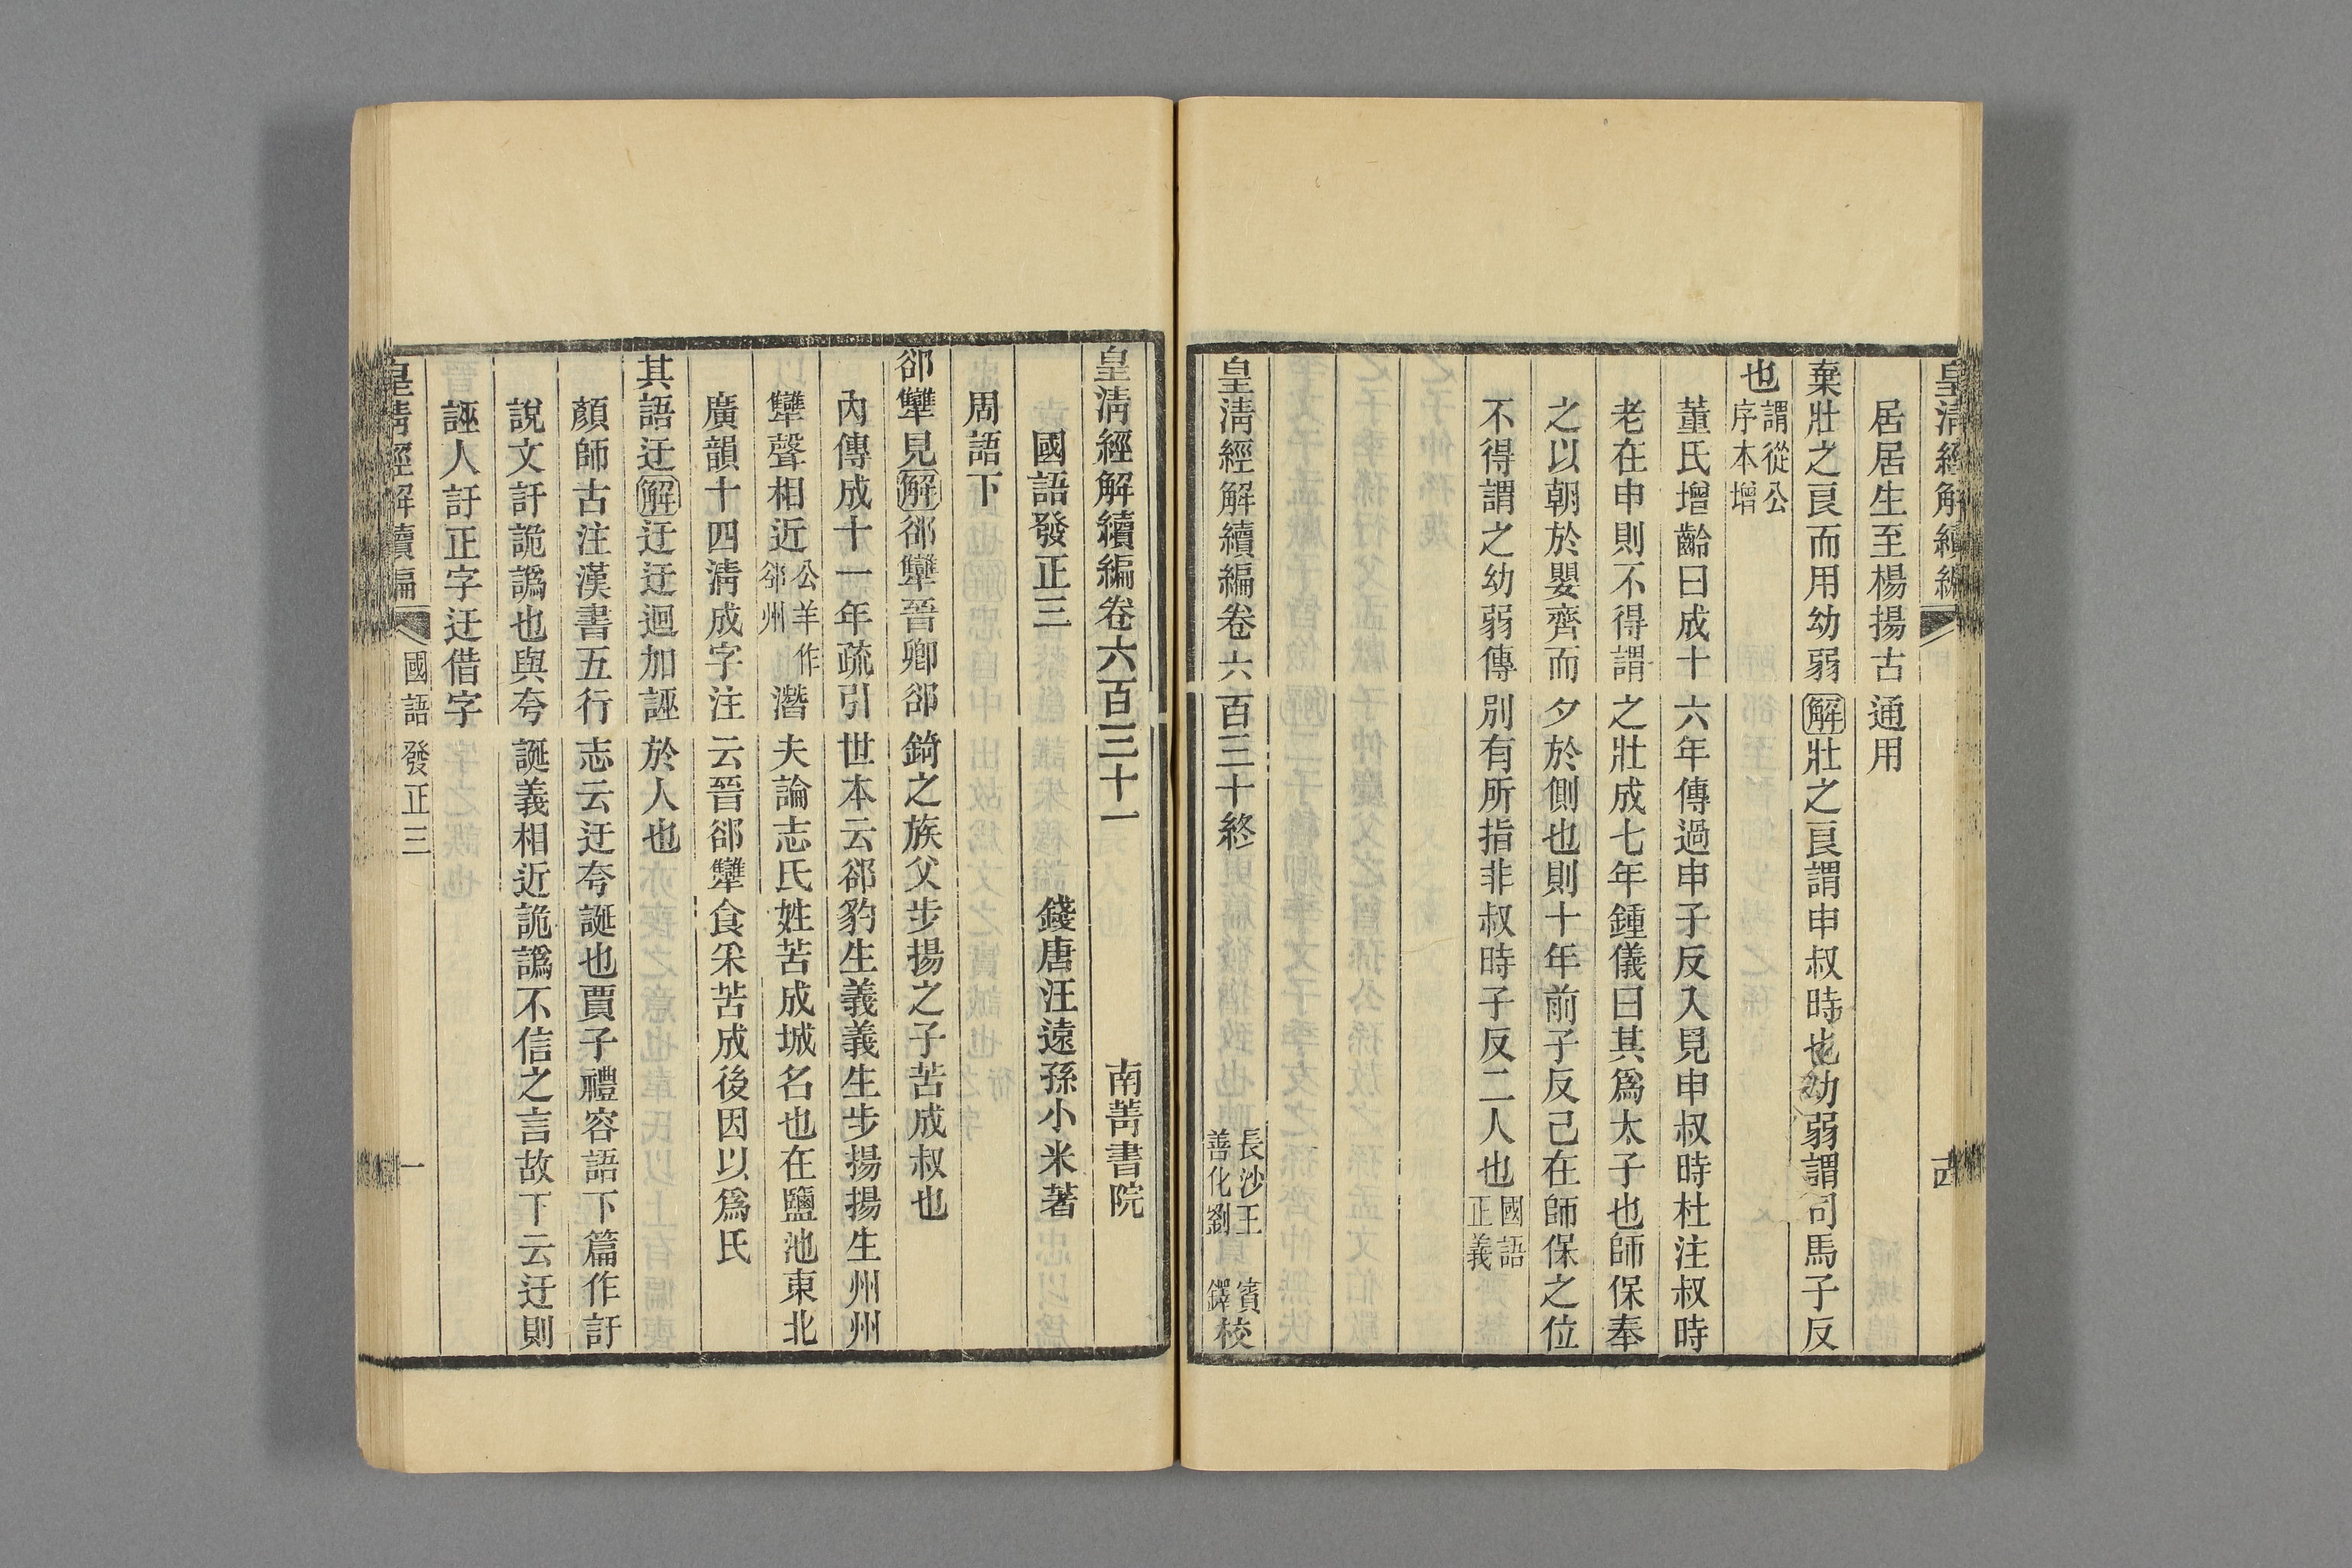 皇清經解續編
居居生至楊揚古通用
棄壯之良而用幼弱解壯之良謂申叔時也幼弱謂司馬子反
也謂從公序本增
董氏增齡曰成十六年傳過申子反入見申叔時杜注叔時
老在申則不得謂之壯成七年鍾儀曰其爲太子也師保奉
之以朝於嬰齊而夕於側也則十年前子反己在師保之位
不得謂之幼弱傳別有所指非叔時子反二人也國語正義
皇清經解續編卷六百三十終
長沙王 賓
善化劉 鐸校
皇清經解續編卷六百三十一 南菁書院
國語發正三 錢唐汪遠孫小米著
周語下
郤犨見解郤犨晉卿郤錡之族父步揚之子苦成叔也
內傳成十一年疏引世本云郤豹生義義生步揚揚生州州
犨聲相近公羊作郤州潛夫論志氏姓苦成城名也在鹽池東北
廣韻十四清成字注云晉郤犨食采苦成後因以爲氏
其語迂解迂迂迴加誣於人也
顏師古注漢書五行志云迂夸誕也賈子禮容語下篇作訏
說文訏詭譌也與夸誕義相近詭譌不信之言故下云迂則
誣人訏正字迂借字
皇清經解續編 國語發正三 一